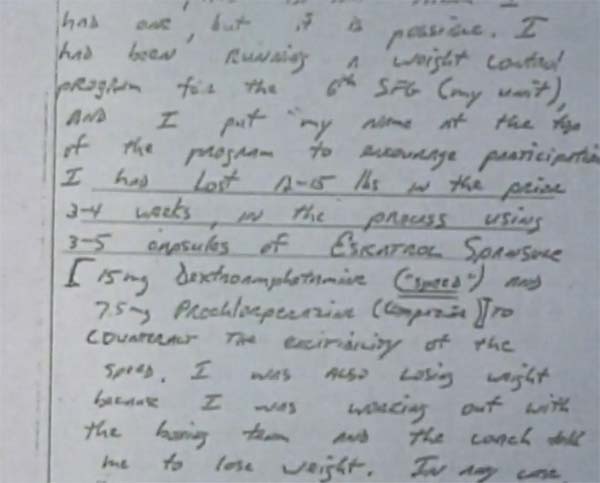 had one, but it is possible. I
had been running a weight control
program for the 6th SFG (my unit),
AND I put my name at the top
of the program to encourage participation
I had lost 12-15 lbs in the prior
3-4 weeks, in the process using
3-5 capsules of ESKATROL Spansule
[15mg Dextroamphetamine ("speed") and
7.5mg Prochlorperazine (Compazine)] to
counteract the excitability of the
speed. I was also losing weight
because I was working out with
the boxing team and the coach told
me to lose weight. In any case